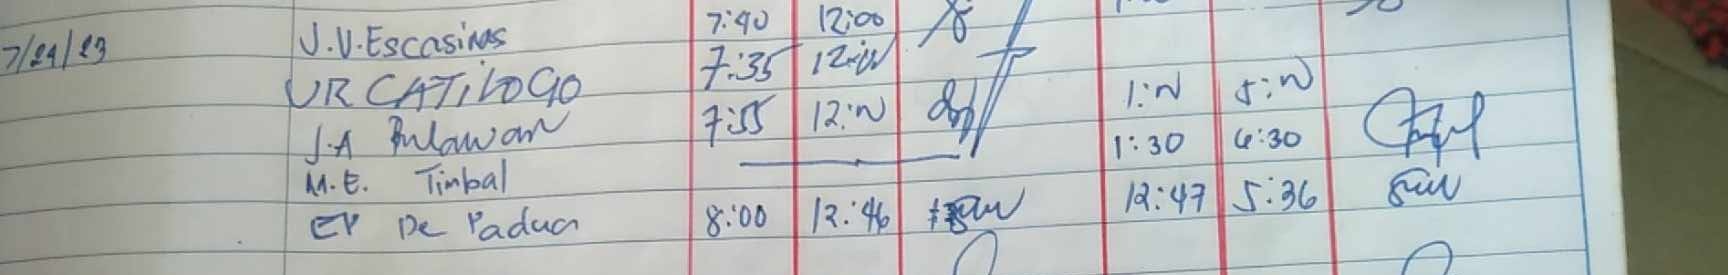 7/21/23 J.V. Escasinas 7:40 12:00
UR CATILOGO 7:35 12:00
J.A Bulawan 7:55 12:00 1:00 5:00
M.E. Timbal 1:30 6:30
EP De Padua 8:00 12:46 12:47 5:36